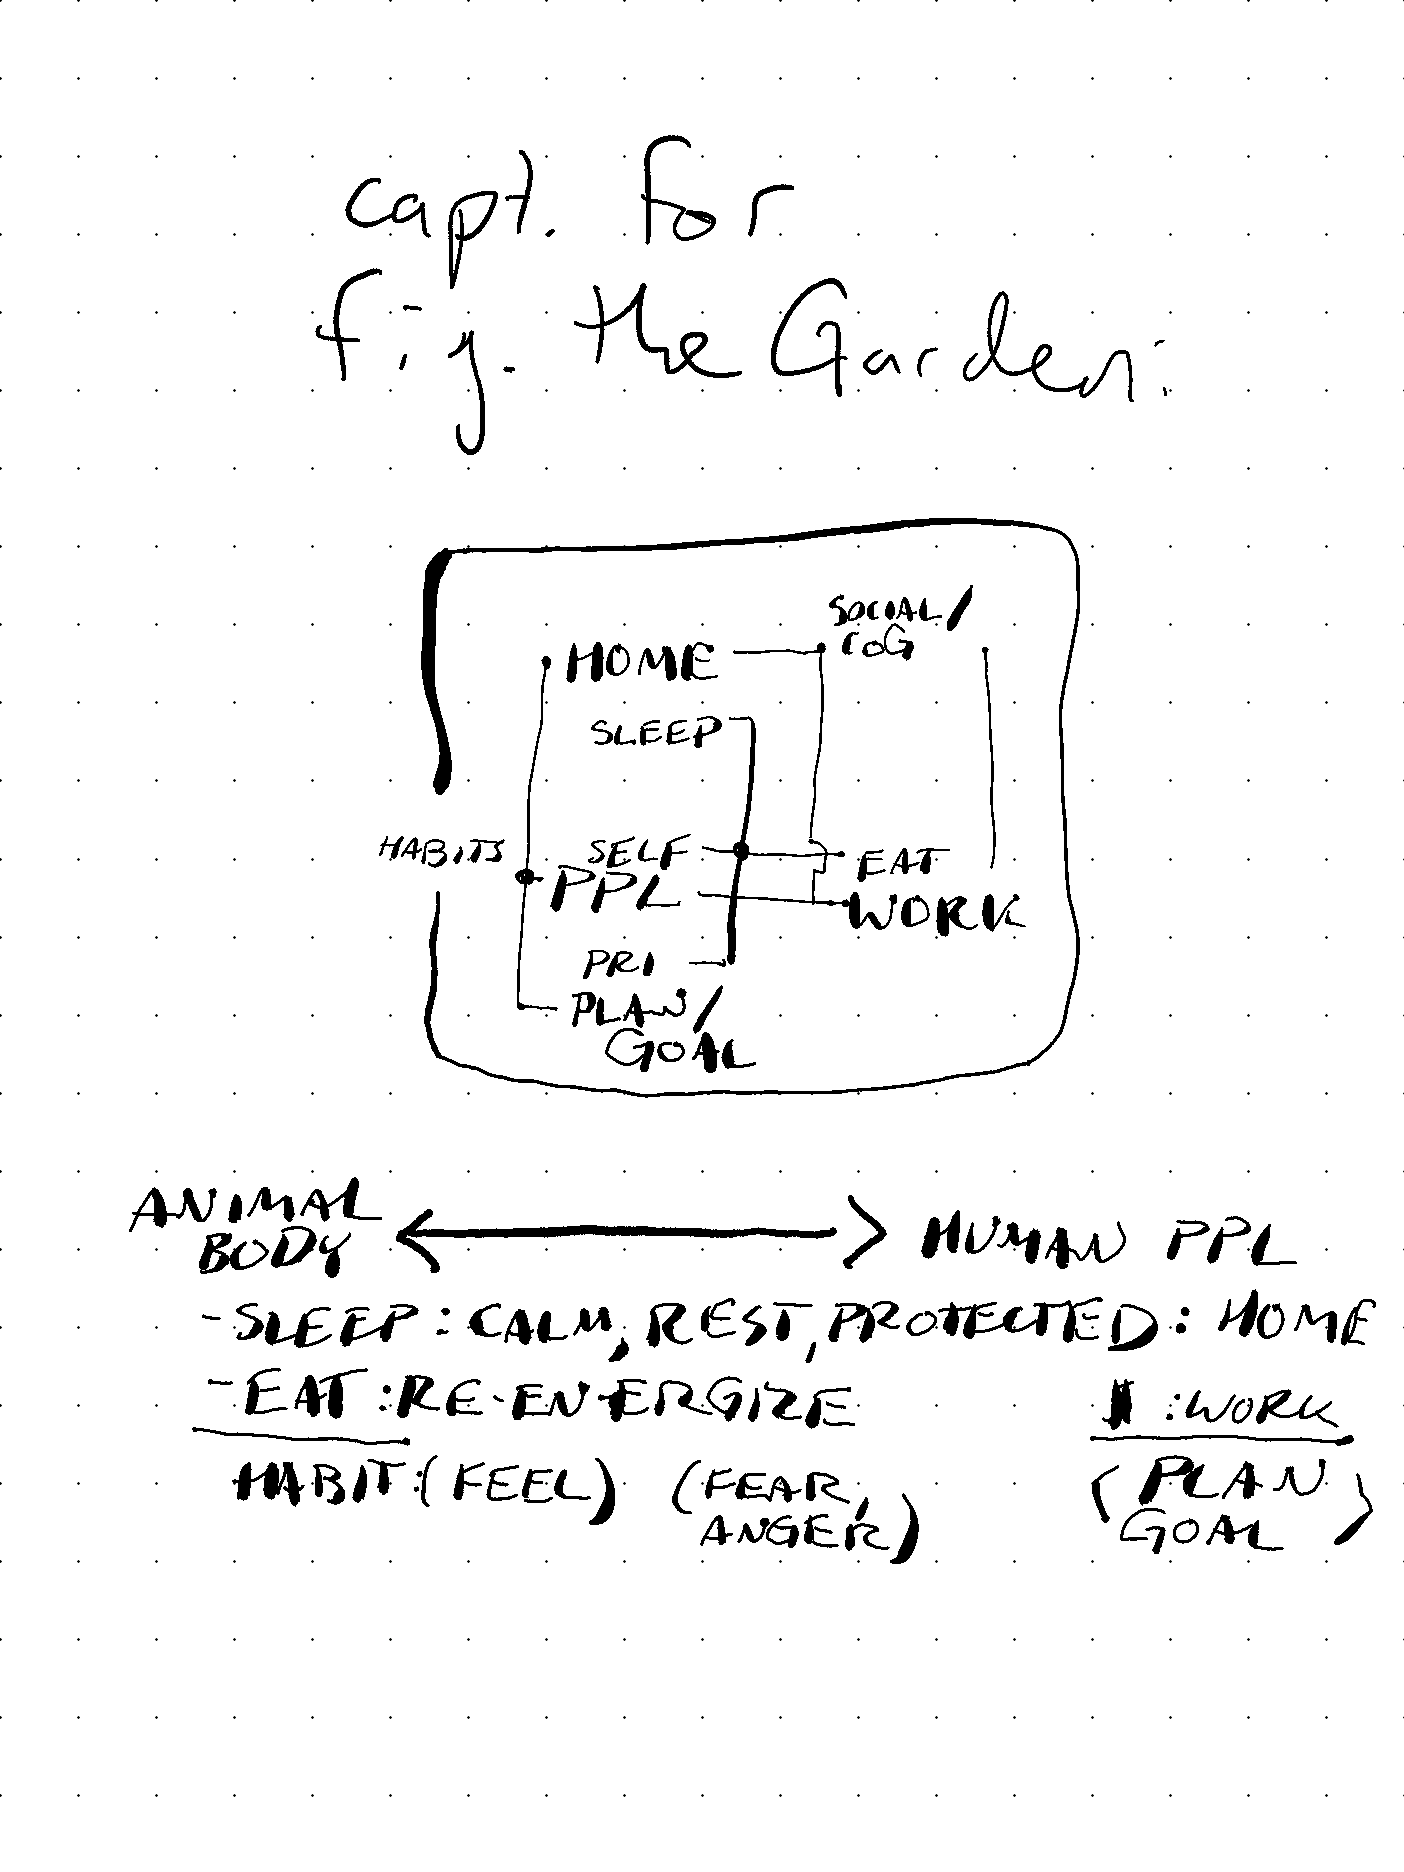 capt. for
fig. the Garden:
SOCIAL/
COG
HOME
SLEEP
HABITS
SELF
EAT
PPL
WORK
PRI
PLAN/
GOAL
ANIMAL
BODY
HUMAN PPL
-SLEEP: CALM, REST, PROTECTED: HOME
-EAT: RE-ENERGIZE :WORK
HABIT: (FEEL) (FEAR, ANGER) (PLAN
GOAL)